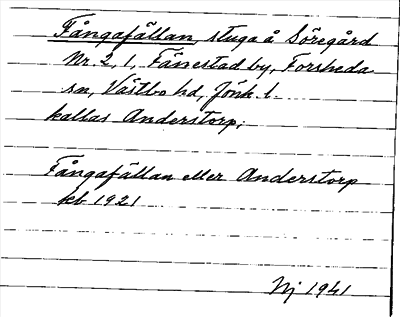 Fångafällan, stuga å Söregård
Nr 2, 1, Fänestad by, Forsheda
sn, Västbo hd, Jönk. l.
kallas Anderstorp;
Fångafällan eller Anderstorp
kb 1921
Nj 1941